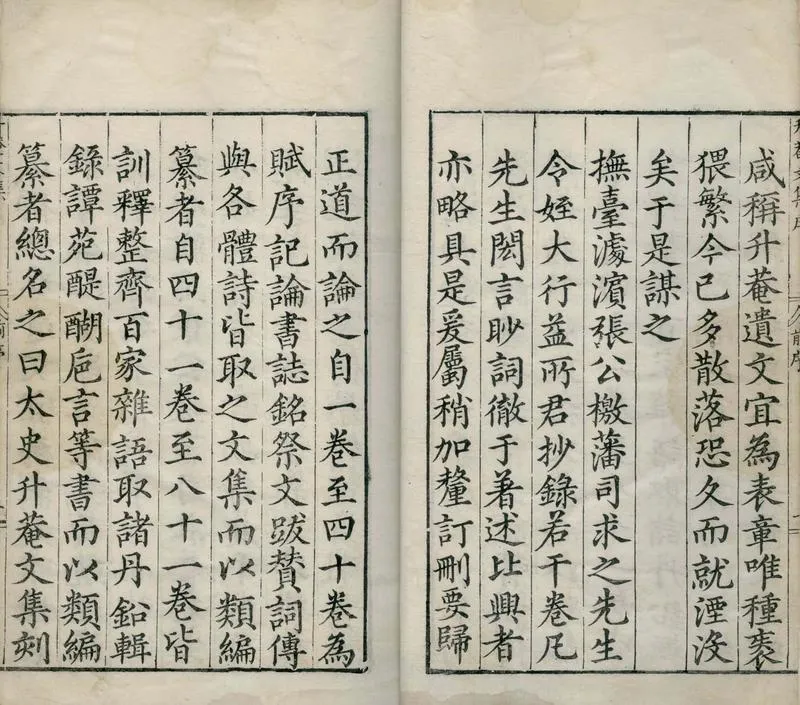 咸稱升菴遺文宜為表章唯種袠
猥繁今已多散落恐久而就湮沒
矣于是謀之
撫臺濾濵張公檄藩司求之先生
令姪大行益所君抄錄若干卷凡
先生閎言眇詞徹于著述比興者
亦略具是爰屬稍加釐訂刪要歸
正道而論之自一卷至四十卷為
賦序記論書誌銘祭文跋贊詞傳
與各體詩皆取之文集而以類編
纂者自四十一卷至八十一卷皆
訓釋整齊百家雜語取諸丹鉛輯
錄譚苑醍醐巵言等書而以類編
纂者總名之曰太史升菴文集刻